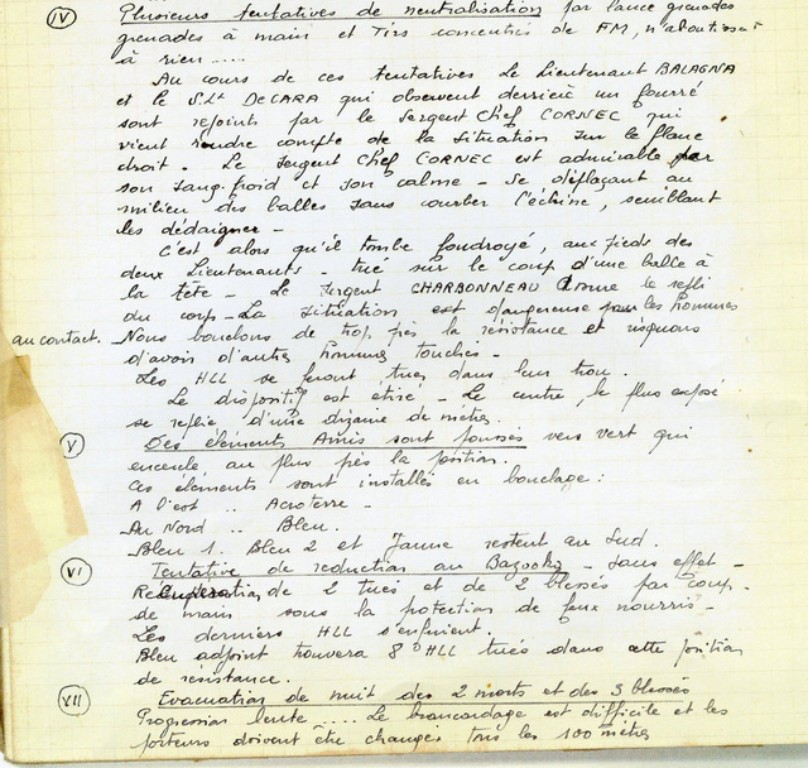 IV Plusieurs tentatives de neutralisation par lance grenades
grenades à main et Tirs concentrés de FM, n'aboutissent
à rien .....
Au cours de ces tentatives le Lieutenant BALAGNA
et le S.Lt DECARA qui observent derrière un fourré
sont rejoints par le Sergent Chef CORNEC qui
vient rendre compte de la situation sur le flanc
droit - Le Sergent Chef CORNEC est admirable par
son sang-froid et son calme - Se déplaçant au
milieu des balles sans courber l'échine, semblant
les dédaigner -
C'est alors qu'il tombe foudroyé, aux pieds des
deux Lieutenants - tué sur le coup d'une balle à
la tête - Le Sergent CHARBONNEAU donne le repli
du corps - La situation est dangereuse pour les hommes
au contact. - Nous bouclons de trop près la résistance et risquons
d'avoir d'autres hommes touchés -
Les HLL se feront tuer dans leur trou.
Le dispositif est étiré - Le centre, le plus exposé
se replie d'une dizaine de mètres.
V Des éléments Amis sont poussés vers vert qui
encercle au plus près la position.
Ces éléments sont installés en bouclage :
A l'est .. Acroterre -
Au Nord .. Bleu.
Bleu 1. Bleu 2 et Jaune restent au Sud.
VI Tentative de reduction au Bazooka - sans effet -
Recuperation de 2 tués et de 2 blessés par coup -
de main sous la potection de feux nourris -
Les derniers HLL s'enfuient.
Bleu adjoint trouvera 8 HLL tués dans cette position
de résistance.
VII Evacuation de nuit des 2 morts et des 3 blessés
Progression lente .... Le brancardage est difficile et les
porteurs doivent être changés tous les 100 mètres